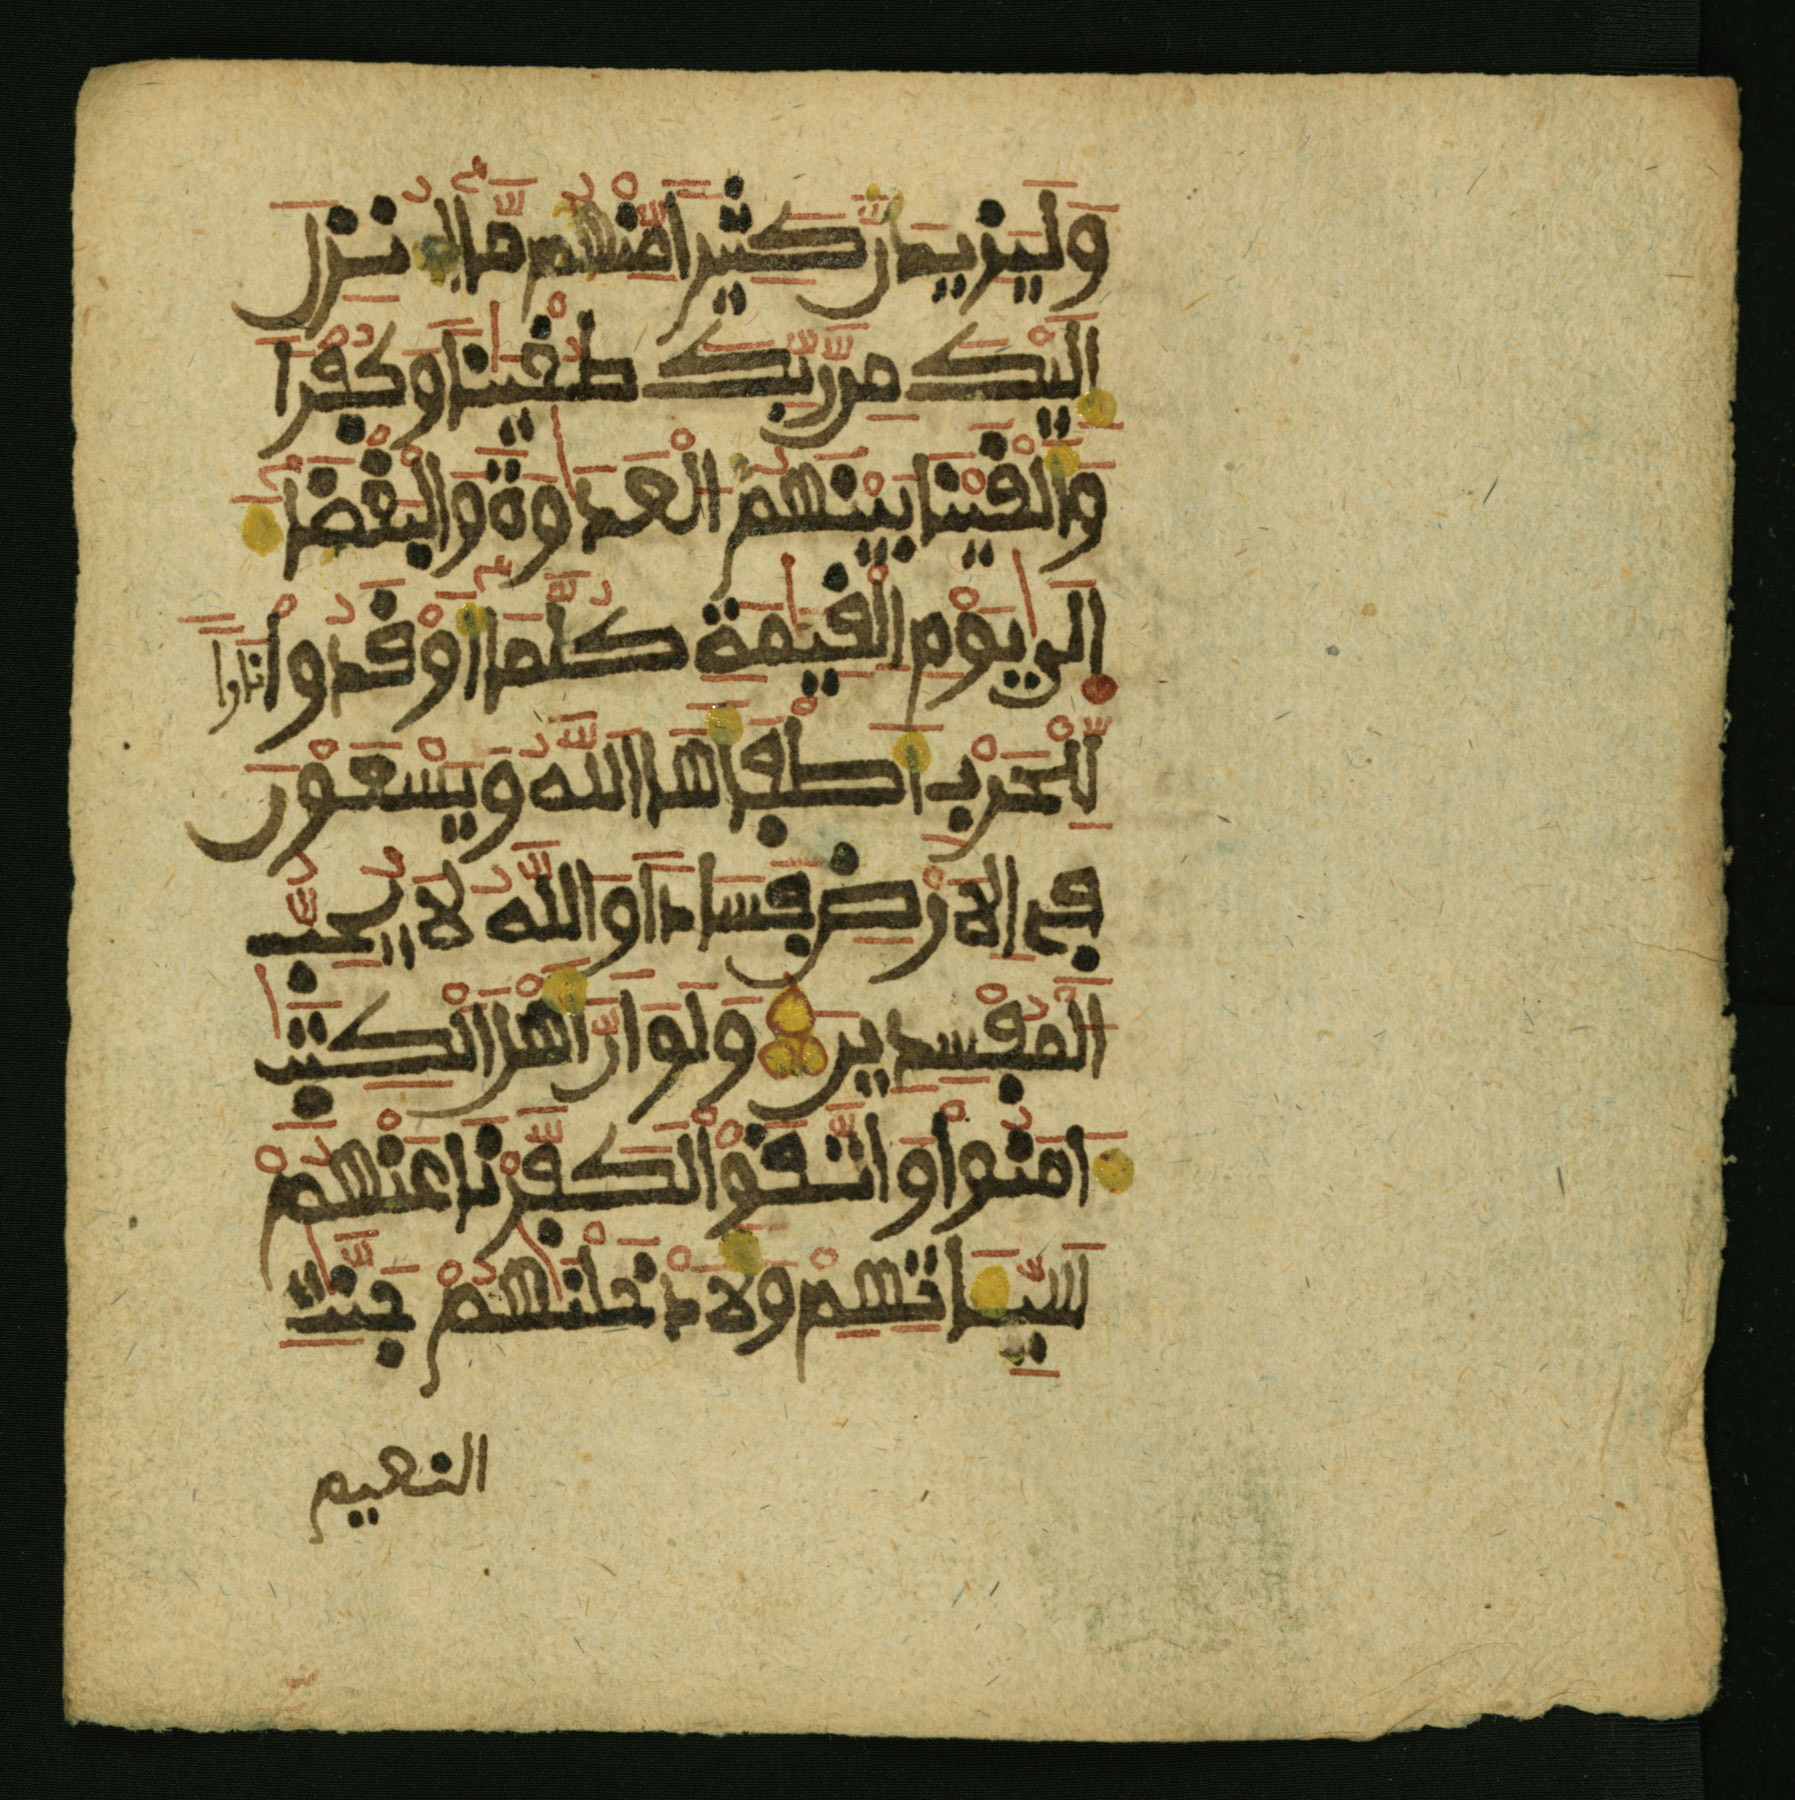 وَلَيَزِيدَنَّ كَثِيرًا مِّنْهُم مَّا أُنزِلَ
إِلَيْكَ مِن رَّبِّكَ طُغْيَٰنًا وَكُفْرًا
وَأَلْقَيْنَا بَيْنَهُمُ الْعَدَٰوَةَ وَالْبَغْضَآءَ
إِلَىٰ يَوْمِ الْقِيَٰمَةِ كُلَّمَآ أَوْقَدُواْ نَارًا
لِّلْحَرْبِ أَطْفَأَهَا اللَّهُ وَيَسْعَوْنَ
فِى الْأَرْضِ فَسَادًا وَاللَّهُ لَا يُحِبُّ
الْمُفْسِدِينَ وَلَوْ أَنَّ أَهْلَ الْكِتَٰبِ
ءَامَنُواْ وَاتَّقَوْاْ لَكَفَّرْنَا عَنْهُمْ
سَيِّـَٔاتِهِمْ وَلَأَدْخَلْنَٰهُمْ جَنَّٰتِ
النعيم